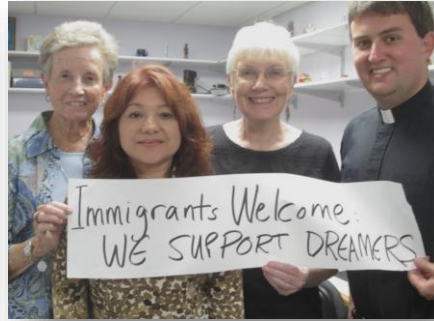 Immigrants Welcome:
WE SUPPORT DREAMERS